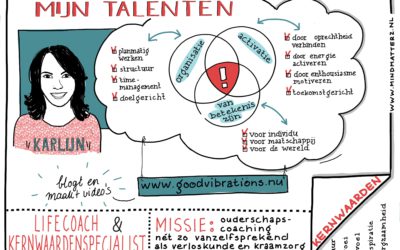 MIJN TALENTEN
WWW.MINDMATTERZ.NL
planmatig
werken
structuur
time-
management
doelgericht
organisatie
activatie
van
betekenis
zijn
door oprechtheid
verbinden
door energie
activeren
door enthousiasme
motiveren
toekomstgericht
voor individu
voor maatschappij
voor de wereld
KARLIJN
blogt en
maakt video's
www.goodvibrations.nu
LIFECOACH &
KERNWAARDENSPECIALIST
MISSIE: ouderschaps-
coaching
nét zo vanzelfsprekend
als verloskunde en kraamzorg
KERNWAARDEN